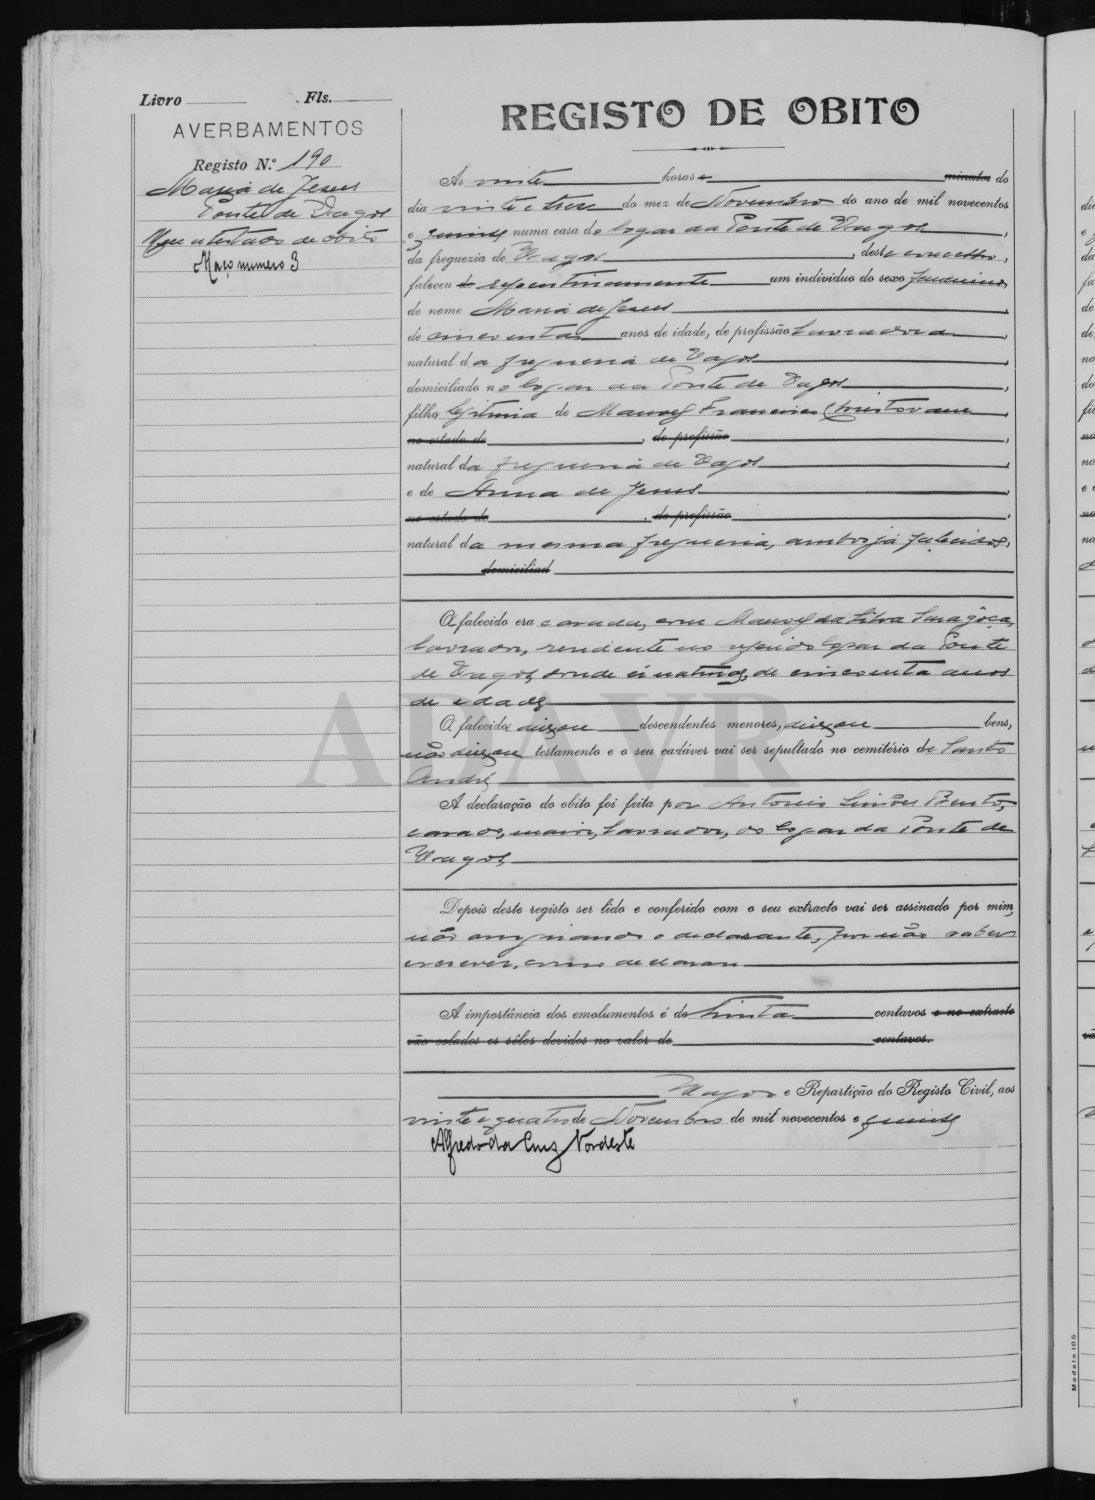 Livro Fls.
AVERBAMENTOS
Registo N.º 190
Maria de Jesus
Ponte de Vagos
atestado de obito
Maço numero 3
REGISTO DE OBITO
Ás vinte horas e minutos do
dia vinte e tres do mez de Novembro do ano de mil novecentos
e quinze numa casa do logar da Ponte de Vagos,
da freguezia de Vagos, deste concelho,
faleceu de repentinamente um individuo do sexo feminino
de nome Maria de Jesus,
de cincoenta anos de idade, de profissão lavradora,
natural da freguesia de Vagos,
domiciliado no logar da Ponte de Vagos,
filha legitima de Manoel Francisco,
no estado de, de profissão,
natural da freguesia de Vagos,
e de Anna de Jesus,
no estado de, de profissão,
natural da mesma freguesia, ambos já falecidos,
domiciliad
A falecida era casada, com Manoel da Silva
lavrador, residente no referido logar da Ponte
de Vagos, donde é natural, de cincoenta anos
de edade,
A falecida deixou descendentes menores, deixou bens,
não deixou testamento e o seu cadáver vai ser sepultado no cemitério de Santo
André,
A declaração do obito foi feita por Antonio Simões Bento,
casado, maior, lavrador, do logar da Ponte de
Vagos,
Depois deste registo ser lido e conferido com o seu extracto vai ser assinado por mim,
não assinando o declarante, por não saber
escrever, como declarou
A importância dos emolumentos é de trinta centavos e no extracto
vão colados os sêlos devidos no valor de centavos.
Vagos e Repartição do Registo Civil, aos
vinte e quatro de Novembro de mil novecentos e quinze
Alfredo da Cruz Nordeste
ADAVR
Modelo 105